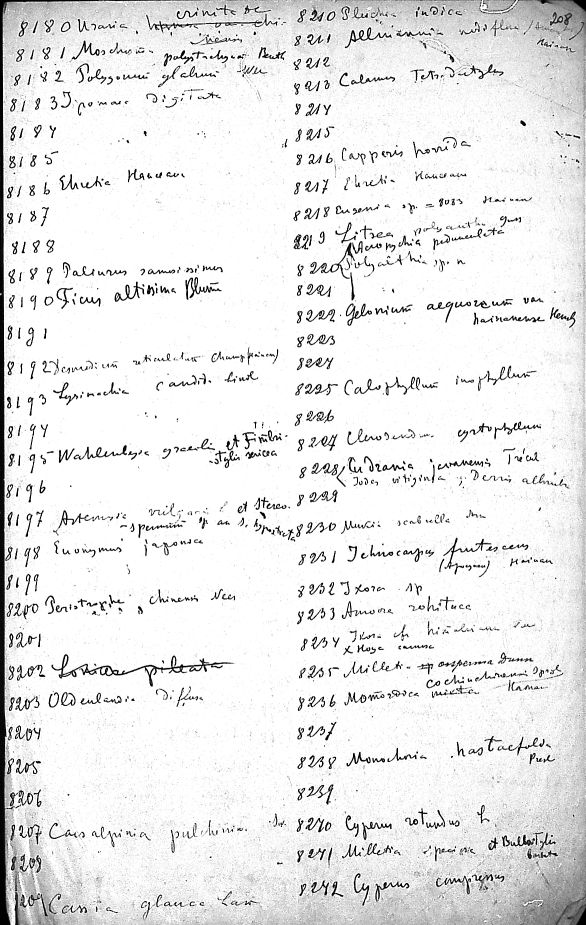 208
8180 Uraria crinita
8181 Moschosma polystachyum Benth
8182 Polygonum glabrum
8183 Ipomoea digitata
8184
8185
8186 Ehretia Hanceana
8187
8188
8189 Paliurus ramosissimus
8190 Ficus altissima Blume
8191
8192 Desmodium reticulatum Champ
8193 Lysimachia candida Lindl
8194
8195 Wahlenbergia gracilis et Fimbri-
-stylis sericea
8196
8197 Artemisia vulgaris L et Stereo-
-spermum sp
8198 Evonymus japonica
8199
8200 Peristrophe chinensis Nees
8201
8202 pileata
8203 Oldenlandia diffusa
8204
8205
8206
8207 Caesalpinia pulcherima Sw.
8209
Cassia glauca Lam
8210 Pluchea indica
8211 Allmannia nodiflora
Hainan
8212
8213 Calamus Tetradactylus
8214
8215
8216 Capparis horrida
8217 Ehretia Hanceana
8218 Eugenia sp. = 8083 Hainan
8219 Litsea polyantha Juss
Acronychia pedunculata
8220 Polyalthia sp. n
8221
8222 Gelonium aequoreum var
hainanense Hemsl
8223
8224
8225 Calophyllum inophyllum
8226
8227 Clerodendron cyrtophyllum
8228 Cudrania javanensis Trécul
Iodes vitiginea
8229
8230 Mukia scabrella
8231 Ichnocarpus frutescens
(Apocyn) Hainan
8232 Ixora sp
8233 Amoora rohituca
8234 Ixora cf
x Hoya carnosa
8235 Milletia
8236 Momordica cochinchinensis Spreng
mixta Hainan
8237
8238 Monochoria hastaefolia
Presl
8239
8240 Cyperus rotundus L.
8241 Milletia speciosa et Bulbostylis
barbata
8242 Cyperus compressus